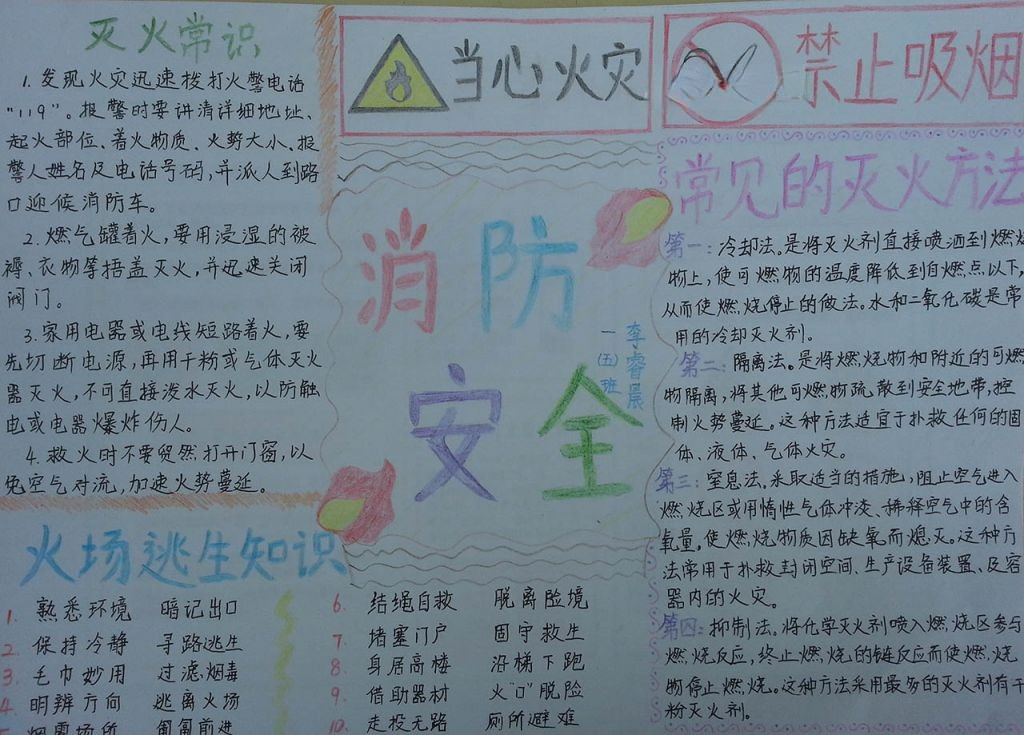 灭火常识
1.发现火灾迅速拨打火警电话
"119"。报警时要讲清详细地址、
起火部位、着火物质、火势大小、报
警人姓名及电话号码,并派人到路
口迎候消防车。
2.燃气罐着火,要用浸湿的被
褥、衣物等捂盖灭火,并迅速关闭
阀门。
3.家用电器或电线短路着火,要
先切断电源,再用干粉或气体灭火
器灭火,不可直接泼水灭火,以防触
电或电器爆炸伤人。
4.救火时不要贸然打开门窗,以
免空气对流,加速火势蔓延。
火场逃生知识
1. 熟悉环境 暗记出口
2. 保持冷静 寻路逃生
3. 毛巾妙用 过滤烟毒
4. 明辨方向 逃离火场
烟雾场所 匍匐前进
当心火灾
消防
安全
一(五)班
李睿晨
6. 结绳自救 脱离险境
7. 堵塞门户 固守救生
8. 身居高楼 沿梯下跑
9. 借助器材 火"口"脱险
10. 走投无路 厕所避难
禁止吸烟
常见的灭火方法
第一:冷却法。是将灭火剂直接喷洒到燃烧
物上,使可燃物的温度降低到自燃点以下,
从而使燃烧停止的做法。水和二氧化碳是常
用的冷却灭火剂。
第二:隔离法。是将燃烧物和附近的可燃
物隔离,将其他可燃物疏散到安全地带,控
制火势蔓延。这种方法适宜于扑救任何的固
体、液体、气体火灾。
第三:窒息法。采取适当的措施,阻止空气进入
燃烧区或用惰性气体冲淡、稀释空气中的含
氧量,使燃烧物质因缺氧而熄灭。这种方
法常用于扑救封闭空间、生产设备装置、及容
器内的火灾。
第四:抑制法。将化学灭火剂喷入燃烧区参与
燃烧反应,终止燃烧的链反应而使燃烧
物停止燃烧。这种方法采用最多的灭火剂有干
粉灭火剂。